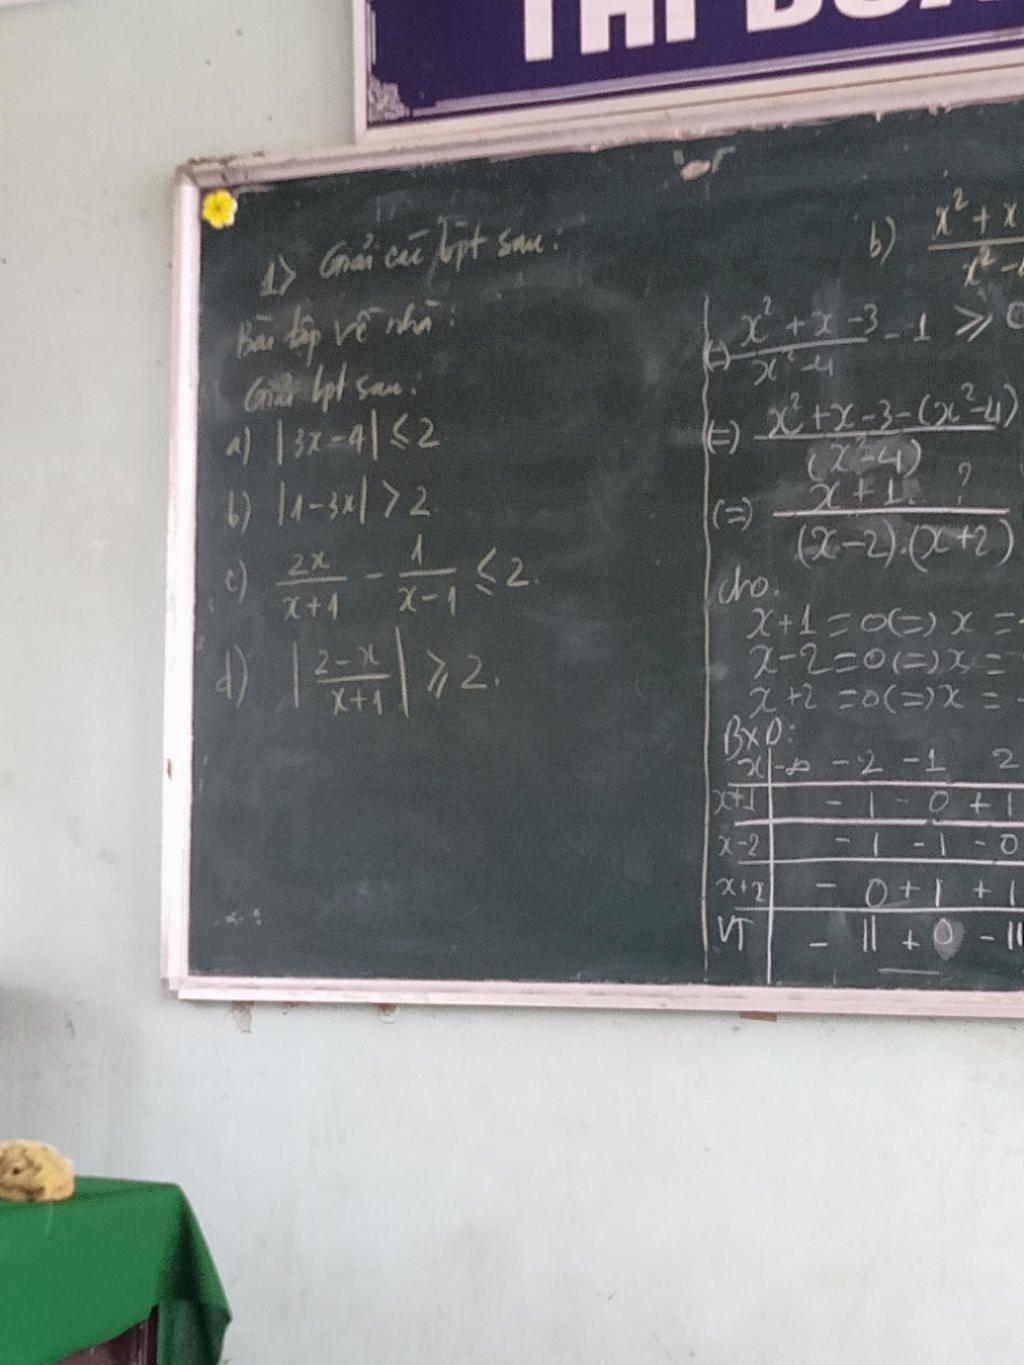 THI ĐUA
1> Giải các bpt sau:
Bài tập về nhà:
Giải bpt sau:
a) |3x-4| ≤ 2
b) |1-3x| > 2
c) 2x/(x+1) - 1/(x-1) ≤ 2.
d) |(2-x)/(x+1)| ≥ 2.
b) x² + x
x² -
(=) (x² + x - 3)/(x² - 4) - 1 ≥ 0
(=) (x² + x - 3 - (x² - 4))/(x² - 4)
(=) (x + 1)/((x-2).(x+2)) ?
cho.
x + 1 = 0 (=) x = -
x - 2 = 0 (=) x =
x + 2 = 0 (=) x = -
BXD:
x | -∞ -2 -1 2
x+1 | - | - 0 + |
x-2 | - | - | - 0
x+2 | - 0 + | + |
VT | - || + 0 - ||